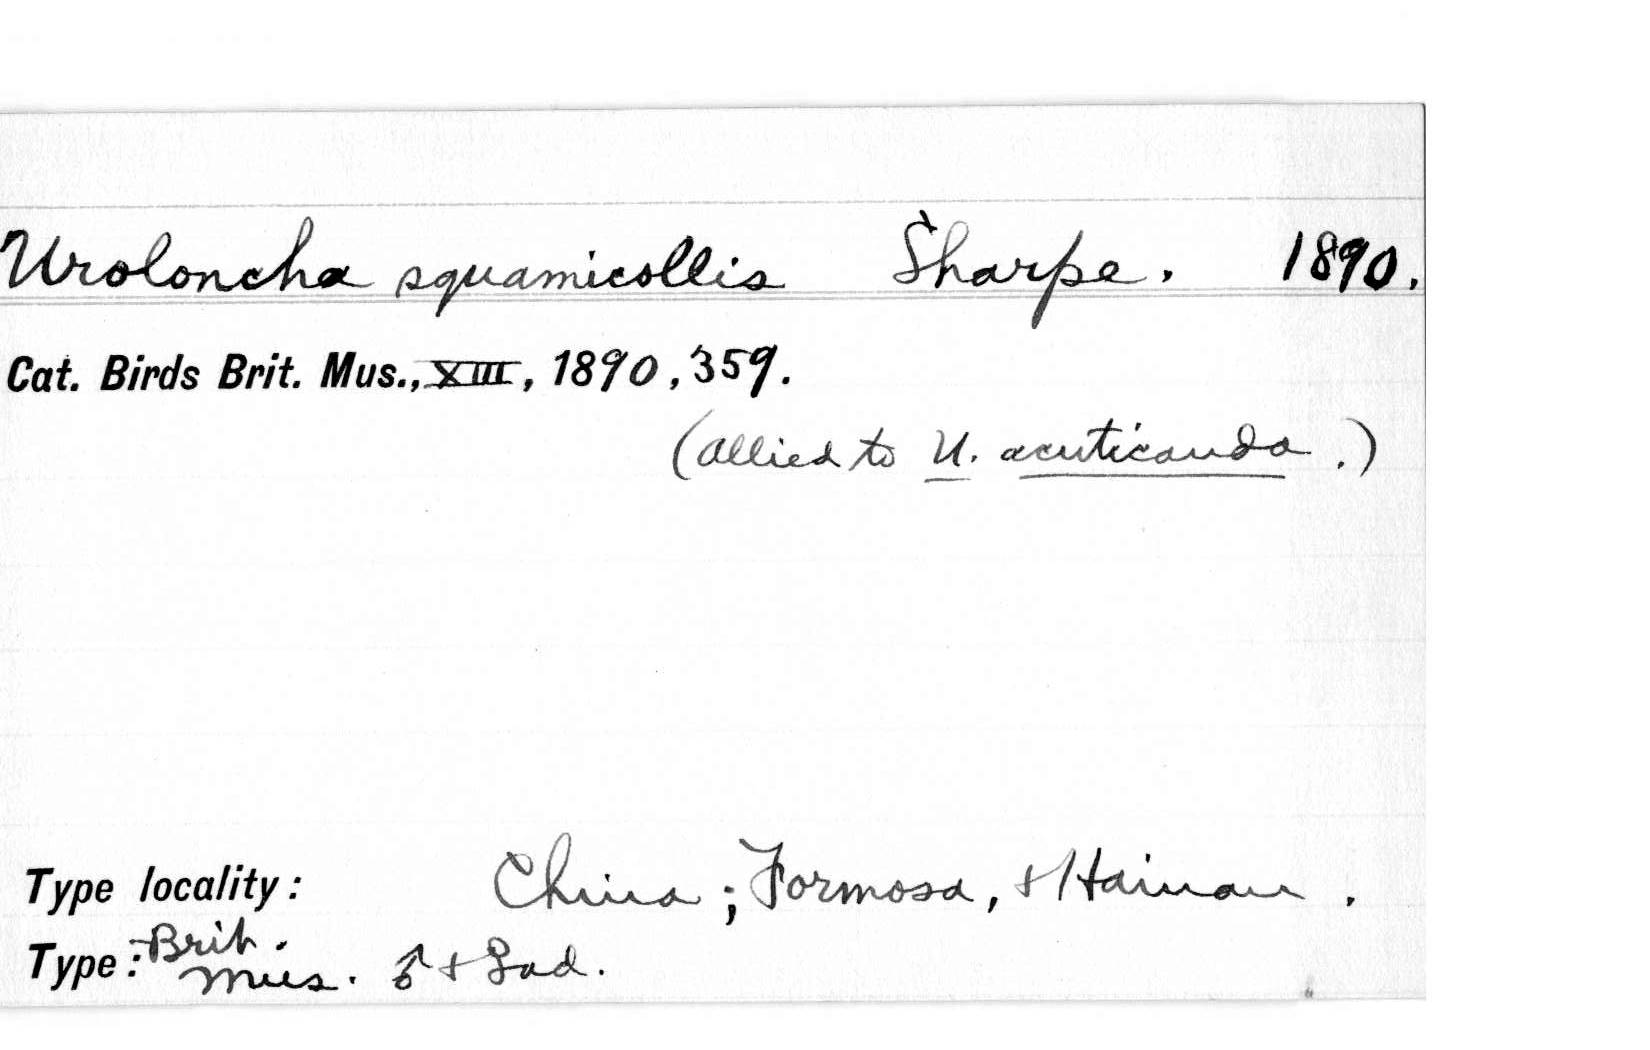 Uroloncha squamicollis Sharpe. 1890.
Cat. Birds Brit. Mus., XIII, 1890, 359.
(allied to U. acuticauda.)
Type locality: China; Formosa, & Hainan.
Type: Brit. Mus. ♂ & ♀ ad.